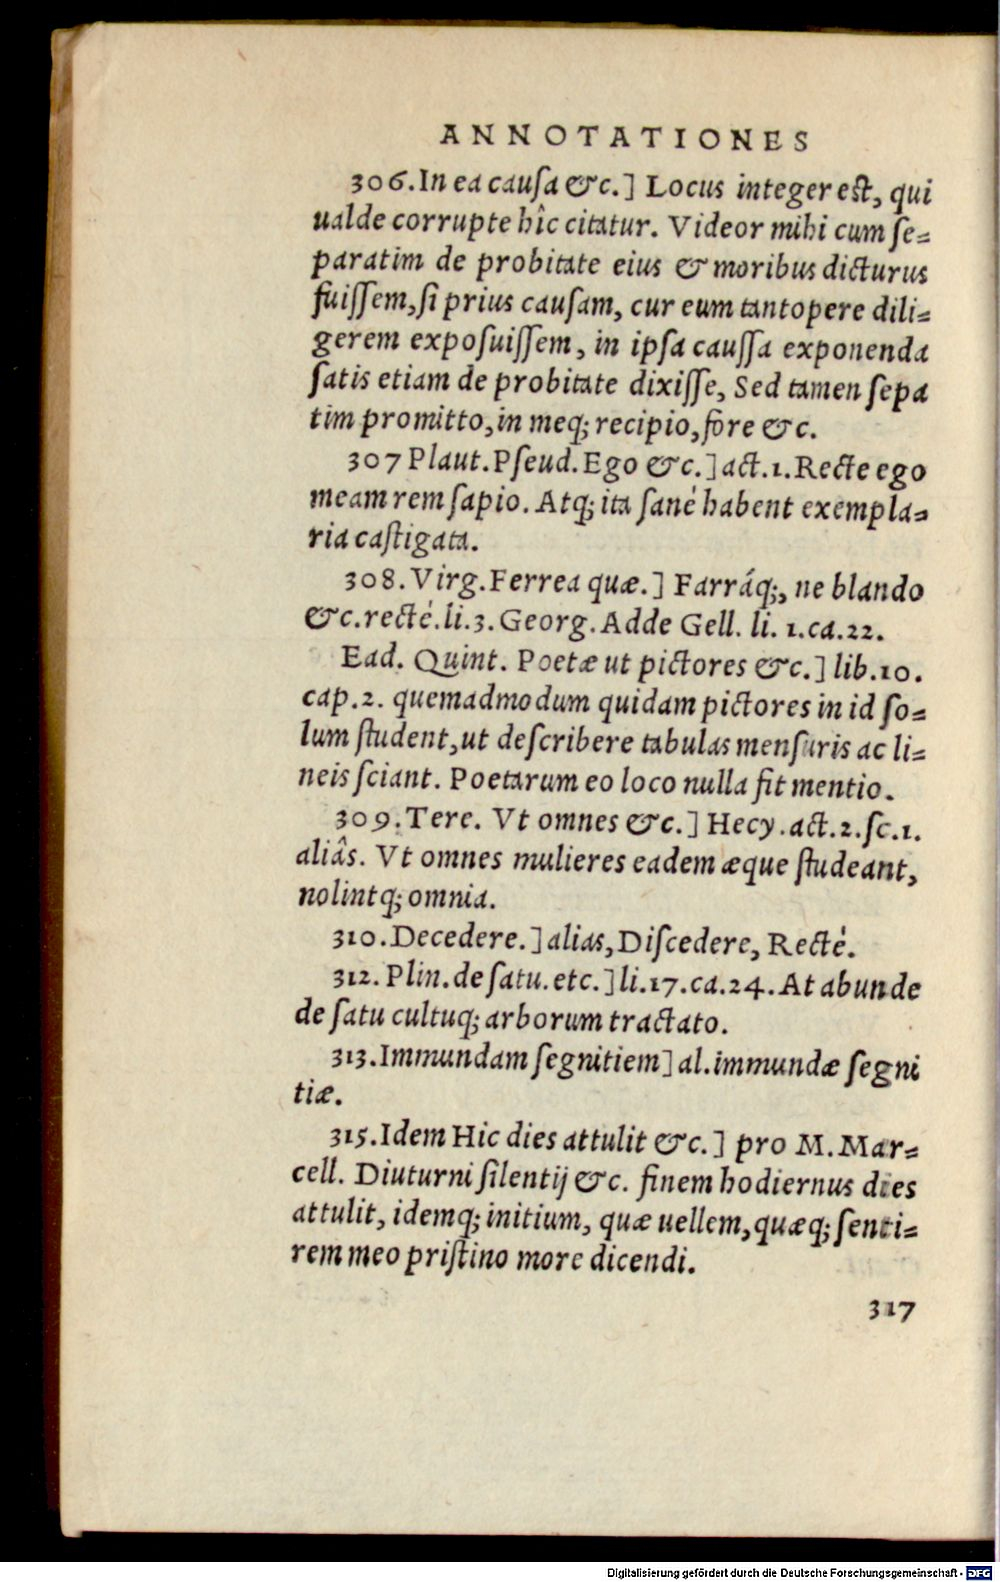 ANNOTATIONES
306.In ea causa &c.] Locus integer est, qui
ualde corrupte hîc citatur. Videor mihi cum se=
paratim de probitate eius & moribus dicturus
fuissem, si prius causam, cur eum tantopere dili=
gerem exposuissem, in ipsa caussa exponenda
satis etiam de probitate dixisse, Sed tamen sepa
tim promitto, in meq; recipio, fore &c.
307 Plaut. Pseud. Ego &c.] act.1. Recte ego
meam rem sapio. Atq; ita sané habent exempla=
ria castigata.
308. Virg. Ferrea quæ.] Farráq;, ne blando
&c. recté. li.3. Georg. Adde Gell. li. 1. ca. 22.
Ead. Quint. Poetæ ut pictores &c.] lib.10.
cap.2. quemadmodum quidam pictores in id so=
lum student, ut describere tabulas mensuris ac li=
neis sciant. Poetarum eo loco nulla fit mentio.
309. Tere. Vt omnes &c.] Hecy. act. 2. sc. 1.
aliâs. Vt omnes mulieres eadem æque studeant,
nolintq; omnia.
310. Decedere.] alias, Discedere, Recté.
312. Plin. de satu. etc.] li.17. ca. 24. At abunde
de satu cultuq; arborum tractato.
313. Immundam segnitiem] al. immundæ segni
tiæ.
315. Idem Hic dies attulit &c.] pro M. Mar=
cell. Diuturni silentij &c. finem hodiernus dies
attulit, idemq; initium, quæ uellem, quæq; senti=
rem meo pristino more dicendi.
317
Digitalisierung gefördert durch die Deutsche Forschungsgemeinschaft - DFG